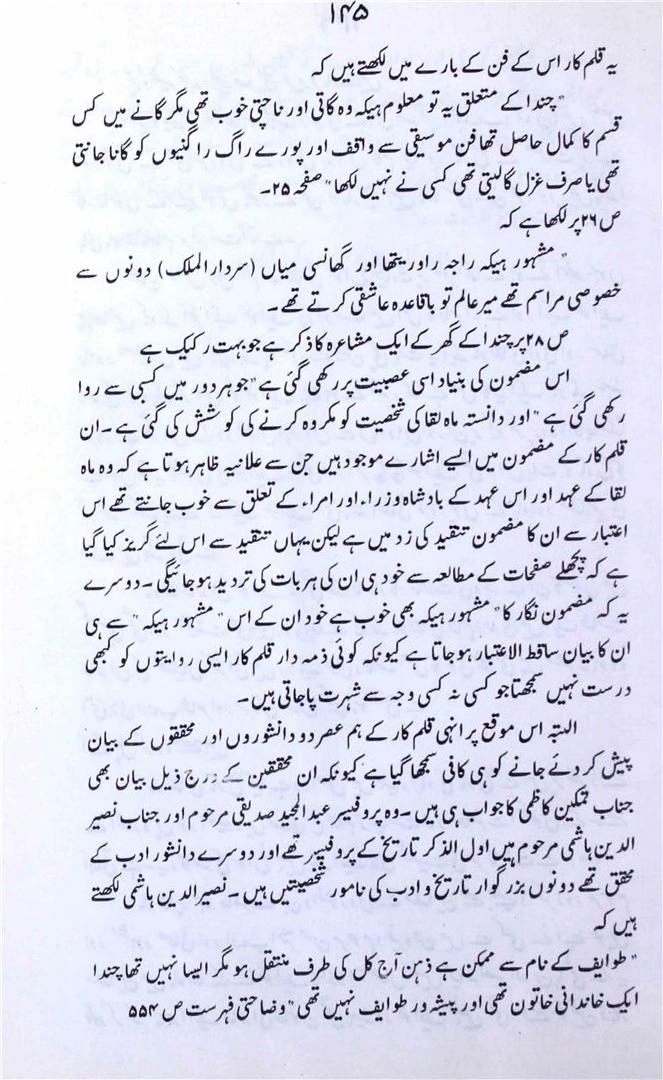 ۱۴۵
یہ قلم کار اس کے فن کے بارے میں لکھتے ہیں کہ
"چندا کے متعلق یہ تو معلوم ہیکہ وہ گاتی اور ناچتی خوب تھی مگر گانے میں کس
قسم کا کمال حاصل تھا فن موسیقی سے واقف اور پورے راگ راگنیوں کو گانا جانتی
تھی یا صرف غزل گا لیتی تھی کسی نے نہیں لکھا" صفحہ ۲۵۔
ص ۲۶ پر لکھا ہے کہ
"مشہور ہیکہ راجہ راور نبھا اور گھانسی میاں (سردار الملک) دونوں سے
خصوصی مراسم تھے میر عالم تو باقاعدہ عاشقی کرتے تھے۔
ص ۲۸ پر چندا کے گھر کے ایک مشاعرہ کا ذکر ہے جو بہت رکیک ہے
اس مضمون کی بنیاد اسی عصبیت پر رکھی گئی ہے "جو ہر دور میں کسبی سے روا
رکھی گئی ہے" اور دانستہ ماہ لقا کی شخصیت کو مکروہ کرنے کی کوشش کی گئی ہے۔ ان
قلم کار کے مضمون میں ایسے اشارے موجود ہیں جن سے علانیہ ظاہر ہوتا ہے کہ وہ ماہ
لقا کے عہد اور اس عہد کے بادشاہ وزراء اور امراء کے تعلق سے خوب جانتے تھے اس
اعتبار سے ان کا مضمون تنقید کی زد میں ہے لیکن یہاں تنقید سے اس لئے گریز کیا گیا
ہے کہ پچھلے صفحات کے مطالعہ سے خود ہی ان کی ہر بات کی تردید ہو جائیگی۔ دوسرے
یہ کہ مضمون نگار کا "مشہور ہیکہ" بھی خوب ہے خود ان کے اس "مشہور ہیکہ" سے ہی
ان کا بیان ساقط الاعتبار ہو جاتا ہے کیونکہ کوئی ذمہ دار قلم کار ایسی روایتوں کو کبھی
درست نہیں سمجھتا جو کسی نہ کسی وجہ سے شہرت پا جاتی ہیں۔
البتہ اس موقع پر انہی قلم کار کے ہم عصر دو دانشوروں اور محققوں کے بیان
پیش کر دئے جانے کو ہی کافی سمجھا گیا ہے کیونکہ ان محققین کے درج ذیل بیان بھی
جناب تمکین کاظمی کا جواب ہی ہیں۔ وہ پروفیسر عبدالمجید صدیقی مرحوم اور جناب نصیر
الدین ہاشمی مرحوم ہیں اول الذکر تاریخ کے پروفیسر تھے اور دوسرے دانشور ادب کے
محقق تھے دونوں بزرگوار تاریخ و ادب کی نامور شخصیتیں ہیں۔ نصیر الدین ہاشمی لکھتے
ہیں کہ
"طوایف کے نام سے ممکن ہے ذہن آج کل کی طرف منتقل ہو مگر ایسا نہیں تھا چندا
ایک خاندانی خاتون تھی اور پیشہ ور طوایف نہیں تھی" وضاحتی فہرست ص ۵۵۴